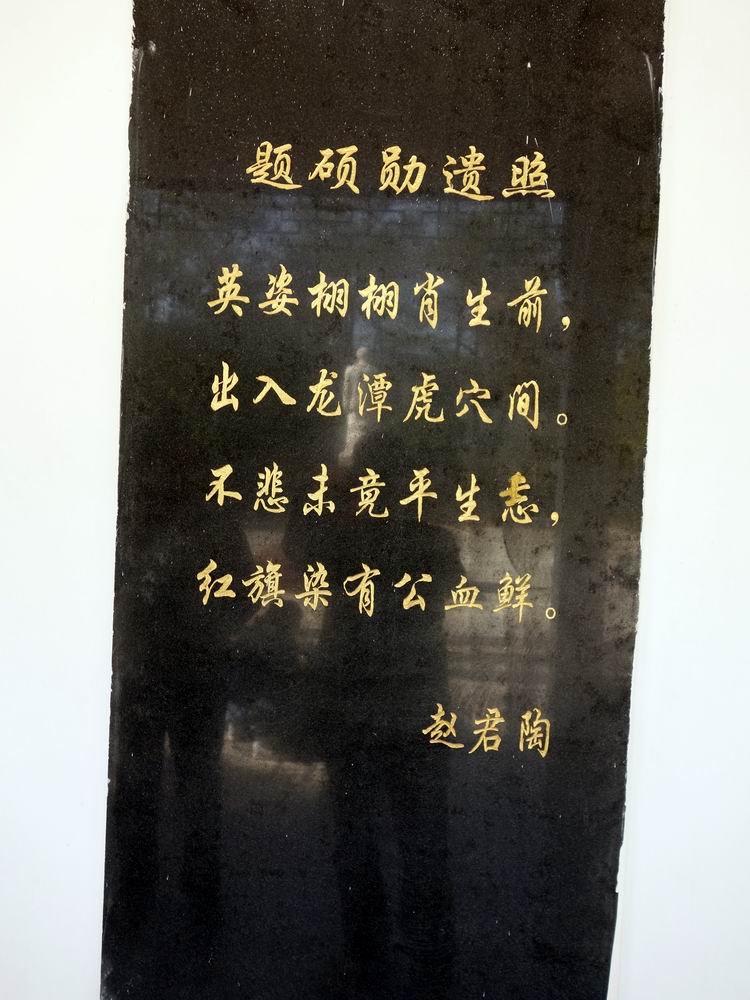 题硕勋遗照
英姿栩栩肖生前，
出入龙潭虎穴间。
不悲未竟平生志，
红旗染有公血鲜。
赵君陶